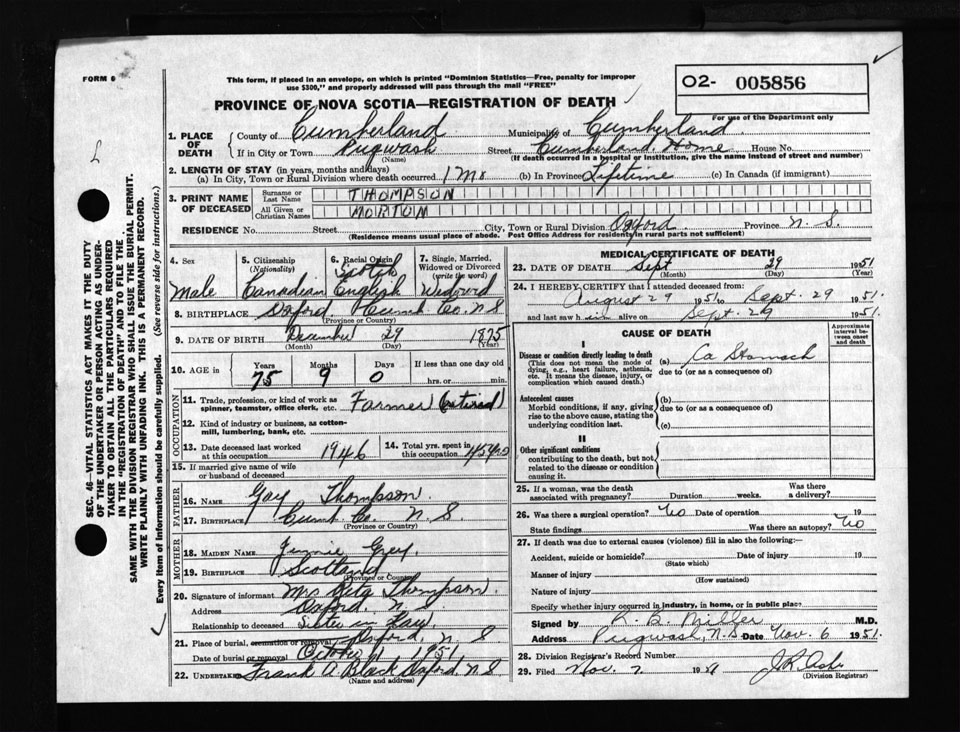 FORM 6
This form, if placed in an envelope, on which is printed "Dominion Statistics—Free, penalty for improper
use $300," and properly addressed will pass through the mail "FREE"
O2- 005856
For use of the Department only
PROVINCE OF NOVA SCOTIA—REGISTRATION OF DEATH
1. PLACE OF DEATH
County of Cumberland Municipality of Cumberland
If in City or Town Pugwash Street Cumberland Home House No.
(Name) (If death occurred in a hospital or institution, give the name instead of street and number)
2. LENGTH OF STAY (in years, months and days)
(a) In City, Town or Rural Division where death occurred 1 Mo (b) In Province Lifetime (c) In Canada (if immigrant)
3. PRINT NAME OF DECEASED
Surname or Last Name THOMPSON
All Given or Christian Names MORTON
RESIDENCE No. Street City, Town or Rural Division Oxford Province N. S.
(Residence means usual place of abode. Post Office Address for residents in rural parts not sufficient)
4. Sex Male
5. Citizenship (Nationality) Canadian
6. Racial Origin Scotch English
7. Single, Married, Widowed or Divorced (write the word) Widowed
8. BIRTHPLACE Oxford Cumb Co. N S
(Province or Country)
9. DATE OF BIRTH December 29 1875
(Month) (Day) (Year)
10. AGE in Years Months Days If less than one day old
75 9 0 hrs. or min.
OCCUPATION
11. Trade, profession, or kind of work as spinner, teamster, office clerk, etc. Farmer (retired)
12. Kind of industry or business, as cotton-mill, lumbering, bank, etc.
13. Date deceased last worked at this occupation 1946
14. Total yrs. spent in this occupation 45 yrs
15. If married give name of wife or husband of deceased
FATHER
16. NAME Gay Thompson
17. BIRTHPLACE Cumb. Co. N. S
(Province or Country)
MOTHER
18. MAIDEN NAME Grey
19. BIRTHPLACE Scotland
(Province or Country)
20. Signature of informant Mrs Thompson
Address Oxford, N. S
Relationship to deceased Sister in Law
21. Place of burial, cremation or removal Oxford, N. S
Date of burial or removal October 1 1951
22. Undertaker Frank A. Black Oxford, N S
(Name and address)
MEDICAL CERTIFICATE OF DEATH
23. DATE OF DEATH Sept 29 1951
(Month) (Day) (Year)
24. I HEREBY CERTIFY that I attended deceased from:
August 29 1951 to Sept. 29 1951
and last saw h im alive on Sept. 29 1951.
CAUSE OF DEATH
Approximate interval between onset and death
I
Disease or condition directly leading to death
(This does not mean the mode of dying, e.g., heart failure, asthenia, etc. It means the disease, injury, or complication which caused death.)
(a) Ca Stomach
due to (or as a consequence of)
Antecedent causes
Morbid conditions, if any, giving rise to the above cause, stating the underlying condition last.
(b)
due to (or as a consequence of)
(c)
II
Other significant conditions
contributing to the death, but not related to the disease or condition causing it.
25. If a woman, was the death associated with pregnancy? Duration weeks. Was there a delivery?
26. Was there a surgical operation? No Date of operation 19
State findings Was there an autopsy? No
27. If death was due to external causes (violence) fill in also the following:—
Accident, suicide or homicide? Date of injury 19
(State which)
Manner of injury
(How sustained)
Nature of injury
Specify whether injury occurred in industry, in home, or in public place
Signed by R. B. Miller M.D.
Address Pugwash, N.S. Date Nov. 6 1951.
28. Division Registrar's Record Number
29. Filed Nov. 7 1951
(Division Registrar)
SEC. 46—VITAL STATISTICS ACT MAKES IT THE DUTY
OF THE UNDERTAKER OR PERSON ACTING AS UNDER-
TAKER TO OBTAIN ALL THE PARTICULARS REQUIRED
IN THE "REGISTRATION OF DEATH" AND TO FILE THE
SAME WITH THE DIVISION REGISTRAR WHO SHALL ISSUE THE BURIAL PERMIT.
WRITE PLAINLY WITH UNFADING INK. THIS IS A PERMANENT RECORD.
Every item of information should be carefully supplied. (See reverse side for instructions.)